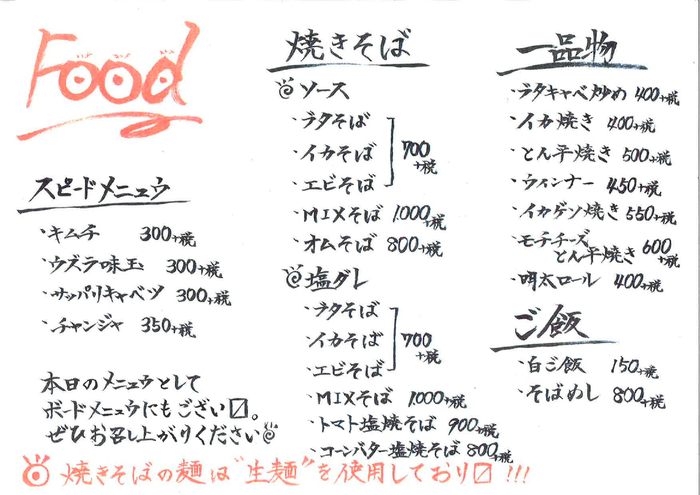 Food
スピードメニュウ
・キムチ 300+税
・ウズラ味玉 300+税
・サッパリキャベツ 300+税
・チャンジャ 350+税
本日のメニュウとして
ボードメニュウにもござい〼。
ぜひお召し上がりください
焼きそば
ソース
・ブタそば
・イカそば 700+税
・エビそば
・MIXそば 1,000+税
・オムそば 800+税
塩ダレ
・ブタそば
・イカそば 700+税
・エビそば
・MIXそば 1,000+税
・トマト塩焼そば 900+税
・コーンバター塩焼そば 800+税
一品物
・ブタキャベ炒め 400+税
・イカ焼き 400+税
・とん平焼き 500+税
・ウィンナー 450+税
・イカゲソ焼き 550+税
・モチチーズ
とん平焼き 600+税
・明太ロール 400+税
ご飯
・白ご飯 150+税
・そばめし 800+税
焼きそばの麺は"生麺"を使用しており〼 !!!